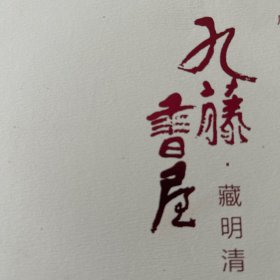 九藤書屋
·藏明清